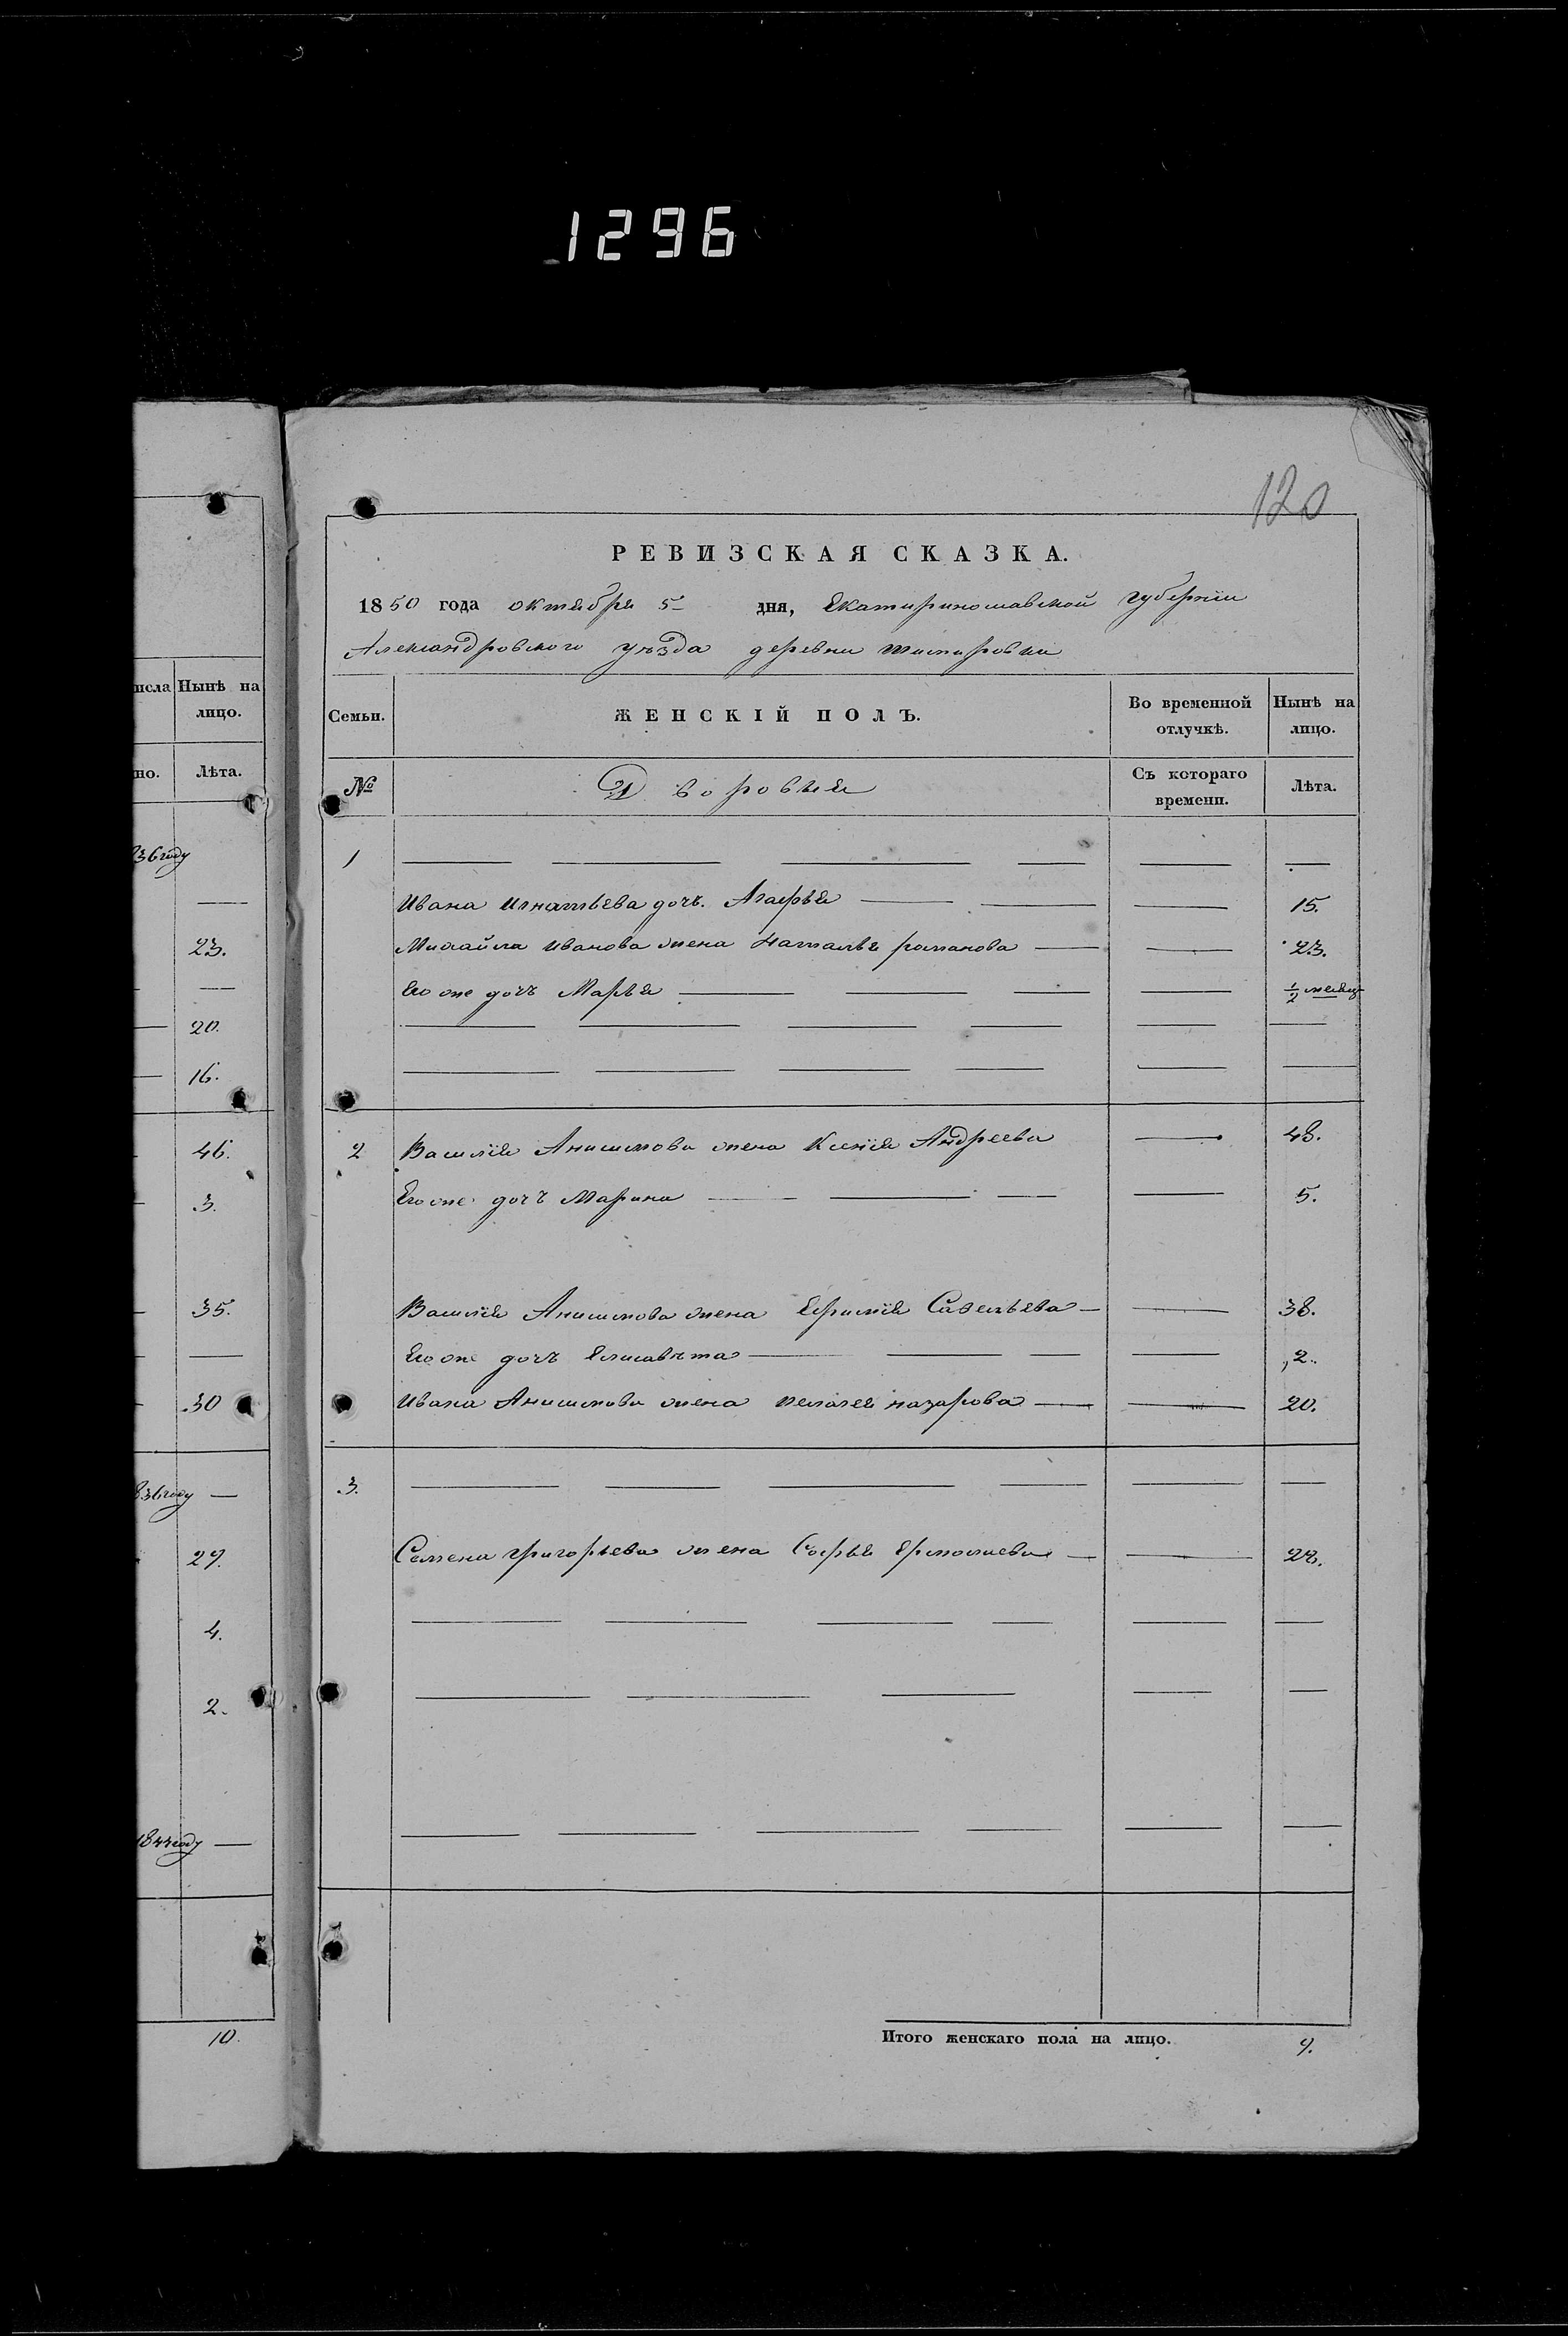 1296
120
РЕВИЗСКАЯ СКАЗКА.
1850 года октября 5 дня, Екатеринославской Губернии
Александровского уѣзда деревни
исла Нынѣ на лицо.
но. Лѣта.
Семьи. ЖЕНСКІЙ ПОЛЪ. Во временной отлучкѣ. Нынѣ на лицо.
№ Дворовыя Съ котораго времени. Лѣта.
836 году
23.
20.
16.
46.
3.
35.
30
836 году
29.
4.
2.
1844 году
10.
1
Ивана Игнатьева дочь. Агафья 15.
Михайла Иванова жена Наталья романова 23.
Его же дочь Марья ½ месяц
2 Василія Анисимова жена Ксенія Андреева 48.
Его же дочь Марина 5.
Василія Анисимова жена Ефимія Савельева 38.
Его же дочь Елисавѣта 2.
Ивана Анисимова жена пелагея назарова 20.
3.
Семена григорьева жена Софья Ермолаева 28.
Итого женскаго пола на лицо. 9.